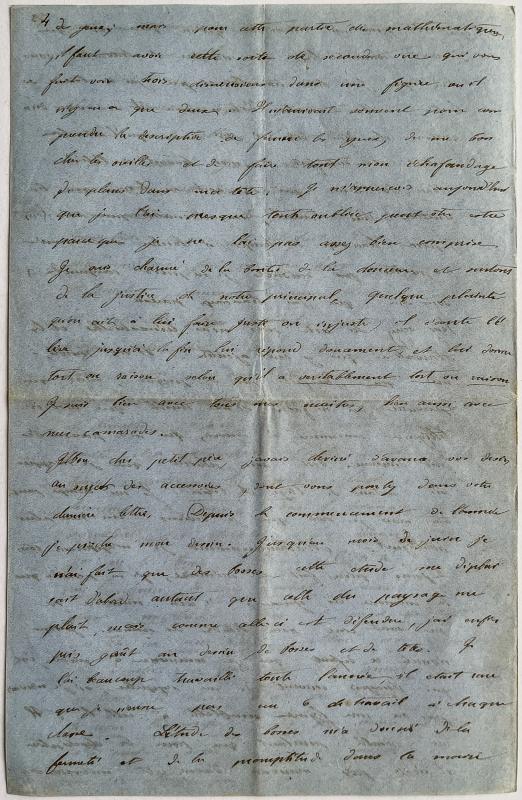 4 de quoi, mais pour cette partie des mathématiques,
il faut avoir cette sorte de seconde vue qui vous
fait voir trois dimensions dans une figure, où il
n'y en a que deux. souvent pour com
prendre la descriptive de fermer les yeux, de me bou
cher les oreilles et de faire tout mon échafaudage
de plans dans ma tête. Je m'aperçois aujourd'hui
que je l'ai presque toute oubliée, peut être
parce que je ne l'ai pas assez bien comprise
Je suis charmé de la bonté de la douceur et surtout
de la justice de notre principal, quelque plainte
qu'on ait à lui faire juste ou injuste, il écoute l'é
lève jusqu'à la fin lui répond doucement, et lui donne
tort ou raison selon qu'il a véritablement tort ou raison
Je suis bien avec tous mes maîtres, bien aussi avec
mes camarades.
Mon cher petit père j'avais deviné d'avance vos désirs
au sujet des accessoires, dont vous parlez dans votre
dernière lettre. Depuis le commencement de l'année
je mon dessin. Jusqu'au mois de juin je
n'ai fait que des bosses, cette étude me déplai
sait d'abord autant que celle du paysage me
plaît, mais comme celle ci est défendue, j'ai enfin
pris goût au dessin de bosses et de têtes. Je
l'ai beaucoup travaillé toute l'année, il était rare
que je n'eusse pas un 6 de travail à chaque
classe. L'étude des bosses m'a donné de la
fermeté et de la promptitude dans la main